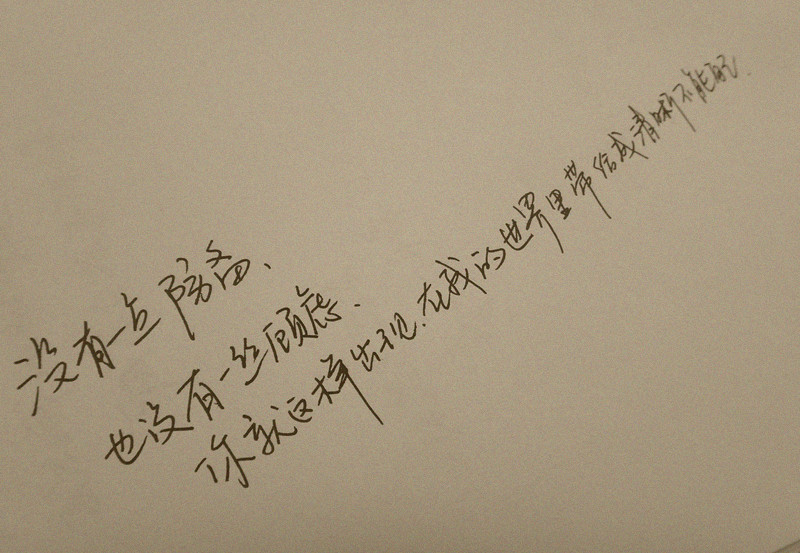 没有一点防备、
也没有一丝顾虑.
你就这样出现.在我的世界里带给我不能